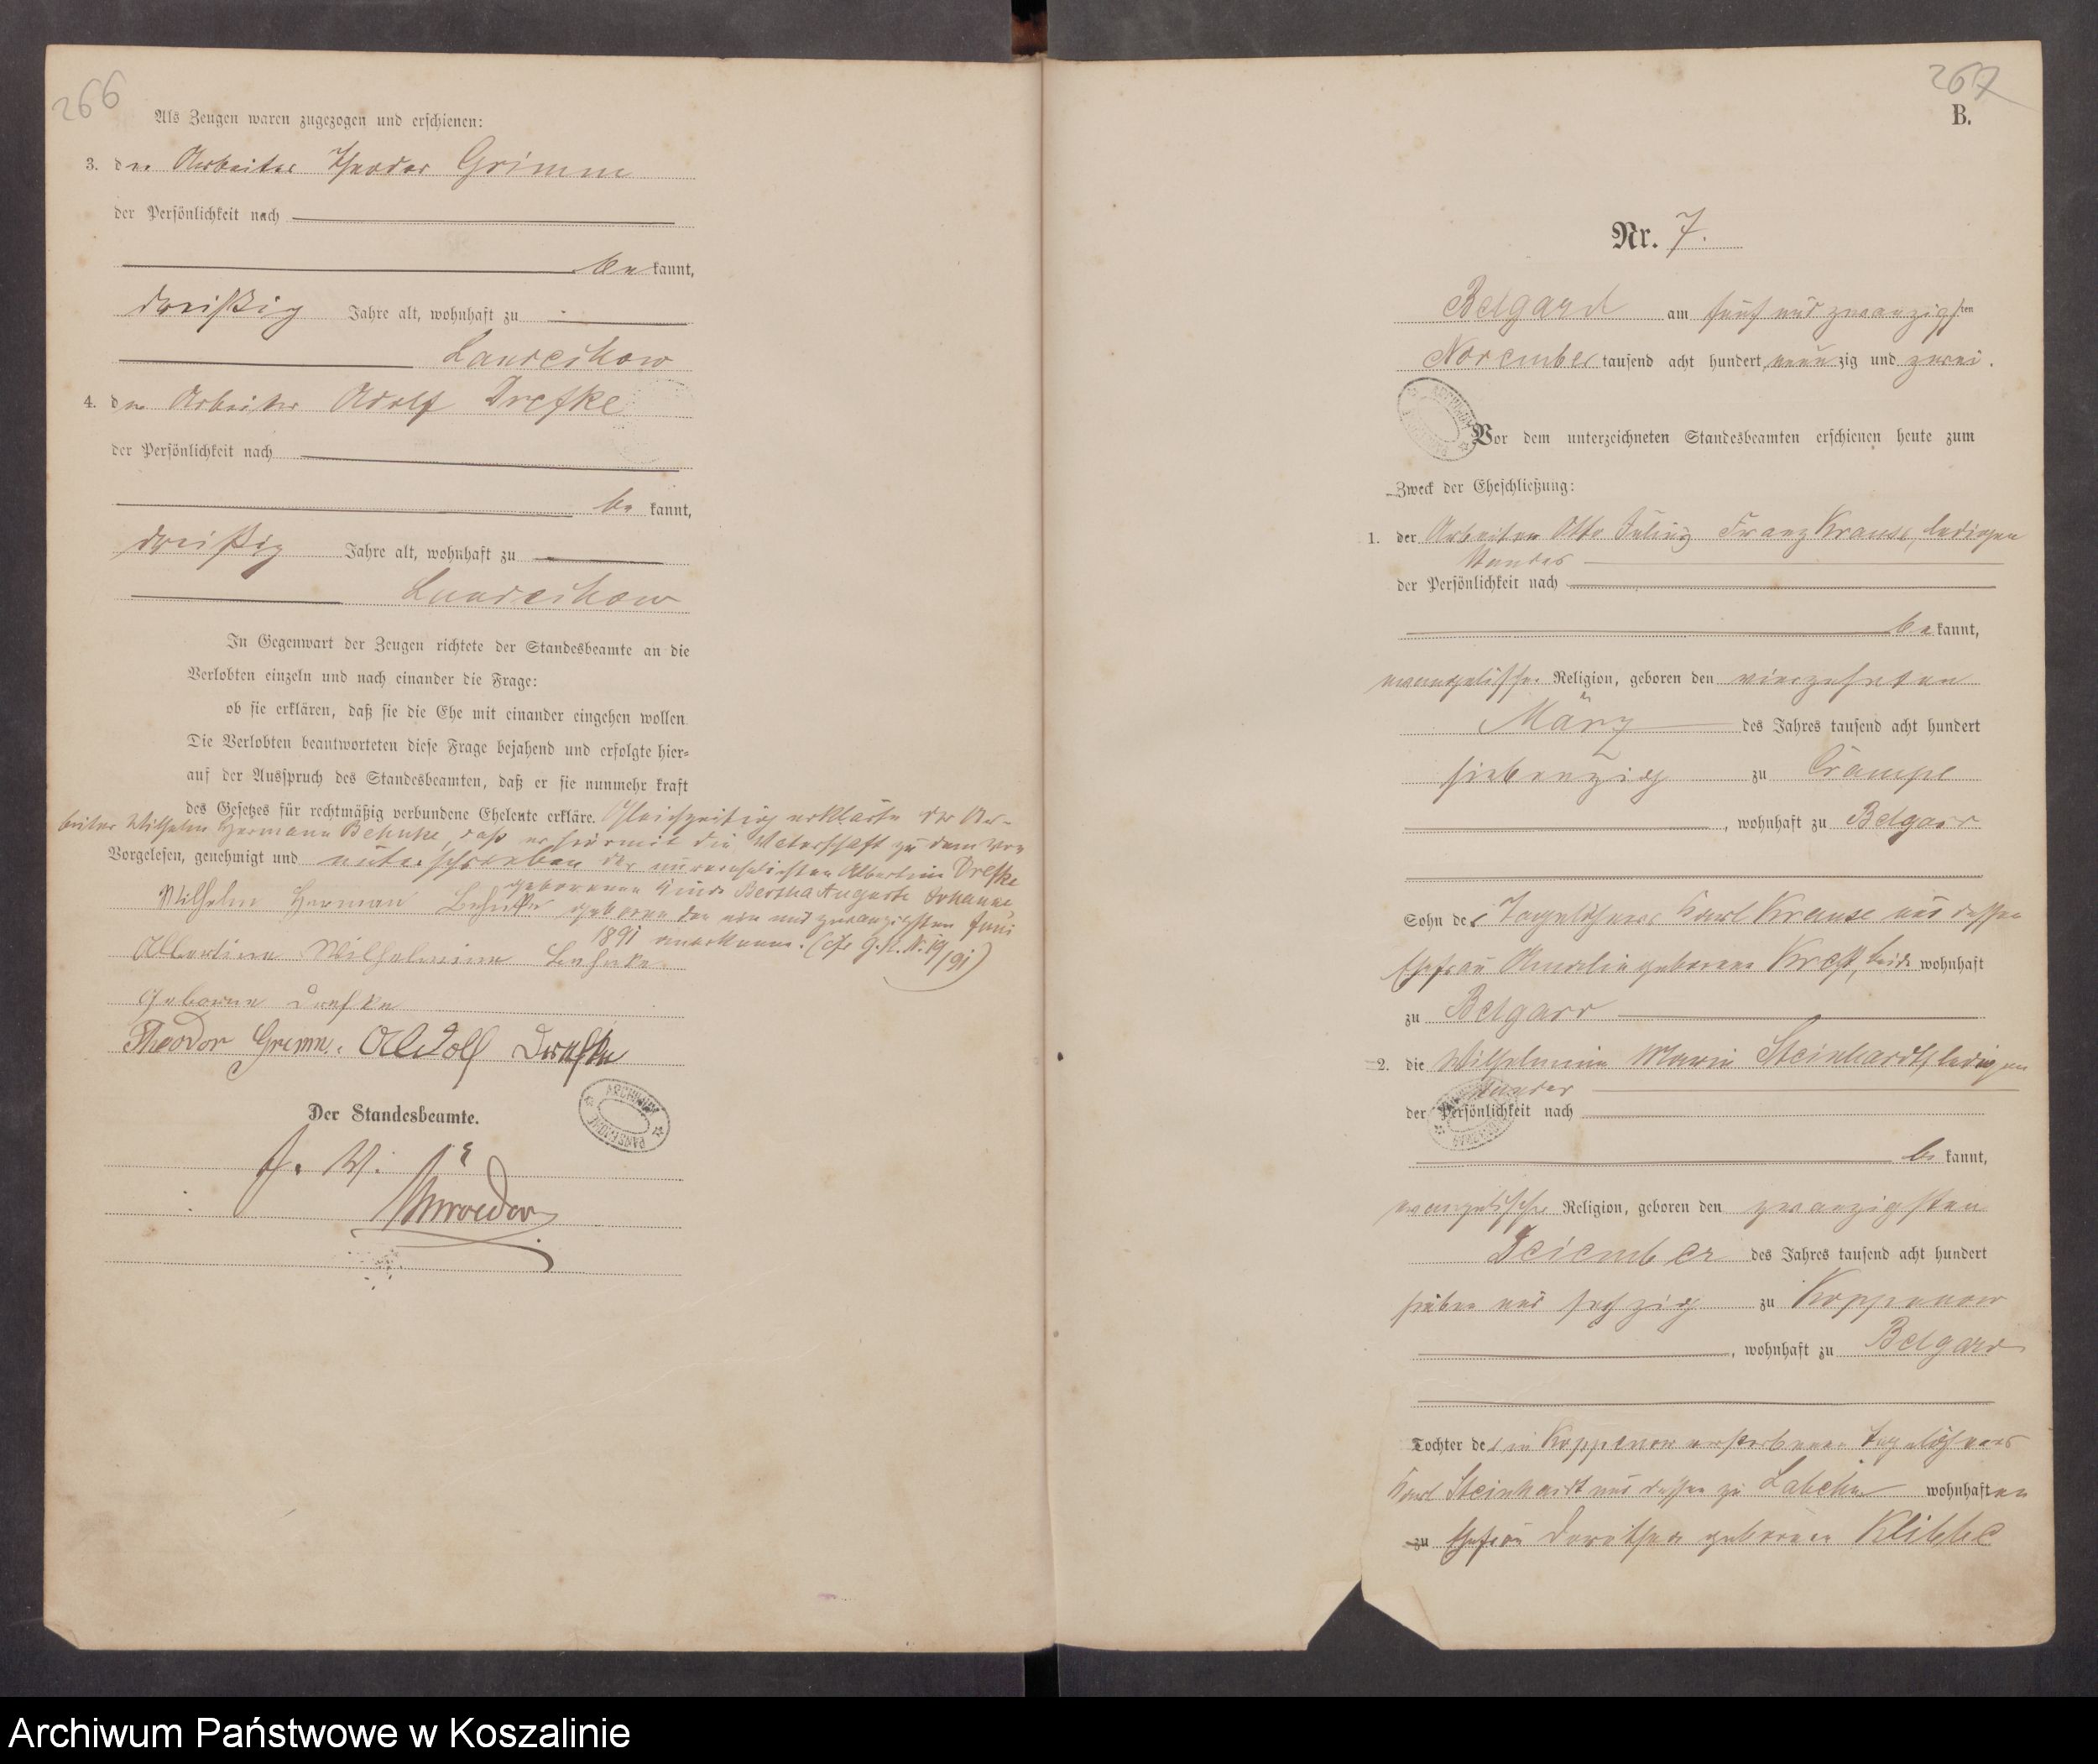 266
Als Zeugen waren zugezogen und erschienen:
3. der Arbeiter Theodor Grimm
der Persönlichkeit nach
be kannt,
dreißig Jahre alt, wohnhaft zu
Landechow
4. der Arbeiter Adolf Drefke
der Persönlichkeit nach
be kannt,
dreißig Jahre alt, wohnhaft zu
Landechow
In Gegenwart der Zeugen richtete der Standesbeamte an die
Verlobten einzeln und nach einander die Frage:
ob sie erklären, daß sie die Ehe mit einander eingehen wollen
Die Verlobten beantworteten diese Frage bejahend und erfolgte hier-
auf der Ausspruch des Standesbeamten, daß er sie nunmehr kraft
des Gesetzes für rechtmäßig verbundene Eheleute erkläre. Gleichzeitig erklärte der Ar-
beiter Wilhelm Hermann Behnke, daß er hiermit die Vaterschaft zu dem von
Vorgelesen, genehmigt und unterschrieben der unverehelichten Albertine Drefke
geborenen Kinde Bertha Auguste Johanne
Wilhelm Herman Behnke geboren den ein und zwanzigsten Juni
1891 anerkenne. (cfr G.R. N. 19/91)
Albertine Wilhelmine Behnke
geborne Drefke
Theodor Grimm. Adolf Drefke
Der Standesbeamte.
J. V.
ARCHIWUM PAŃSTWOWE
267
B.
Nr. 7.
Belgard am fünf und zwanzigsten
November tausend acht hundert neunzig und zwei.
ARCHIWUM
Vor dem unterzeichneten Standesbeamten erschienen heute zum
Zweck der Eheschließung:
1. der Arbeiter Otto Julius Franz Krause, ledigen
Standes
der Persönlichkeit nach
be kannt,
evangelischer Religion, geboren den vierzehnten
März des Jahres tausend acht hundert
siebenzig zu Crampe
, wohnhaft zu Belgard
Sohn des Tagelöhners Karl Krause und dessen
Ehefrau Amalie geborene Kreft, beide wohnhaft
zu Belgard
2. die Wilhelmine Marie Steinhardt, ledigen
Standes
der Persönlichkeit nach
be kannt,
evangelischer Religion, geboren den zwanzigsten
Dezember des Jahres tausend acht hundert
sieben und sechzig zu Koppenow
, wohnhaft zu Belgard
Tochter des in Koppenow verstorbenen Tagelöhners
Karl Steinhardt und dessen zu Labehn wohnhaften
zu Ehefrau Dorothea geborene Klibbe
Archiwum Państwowe w Koszalinie